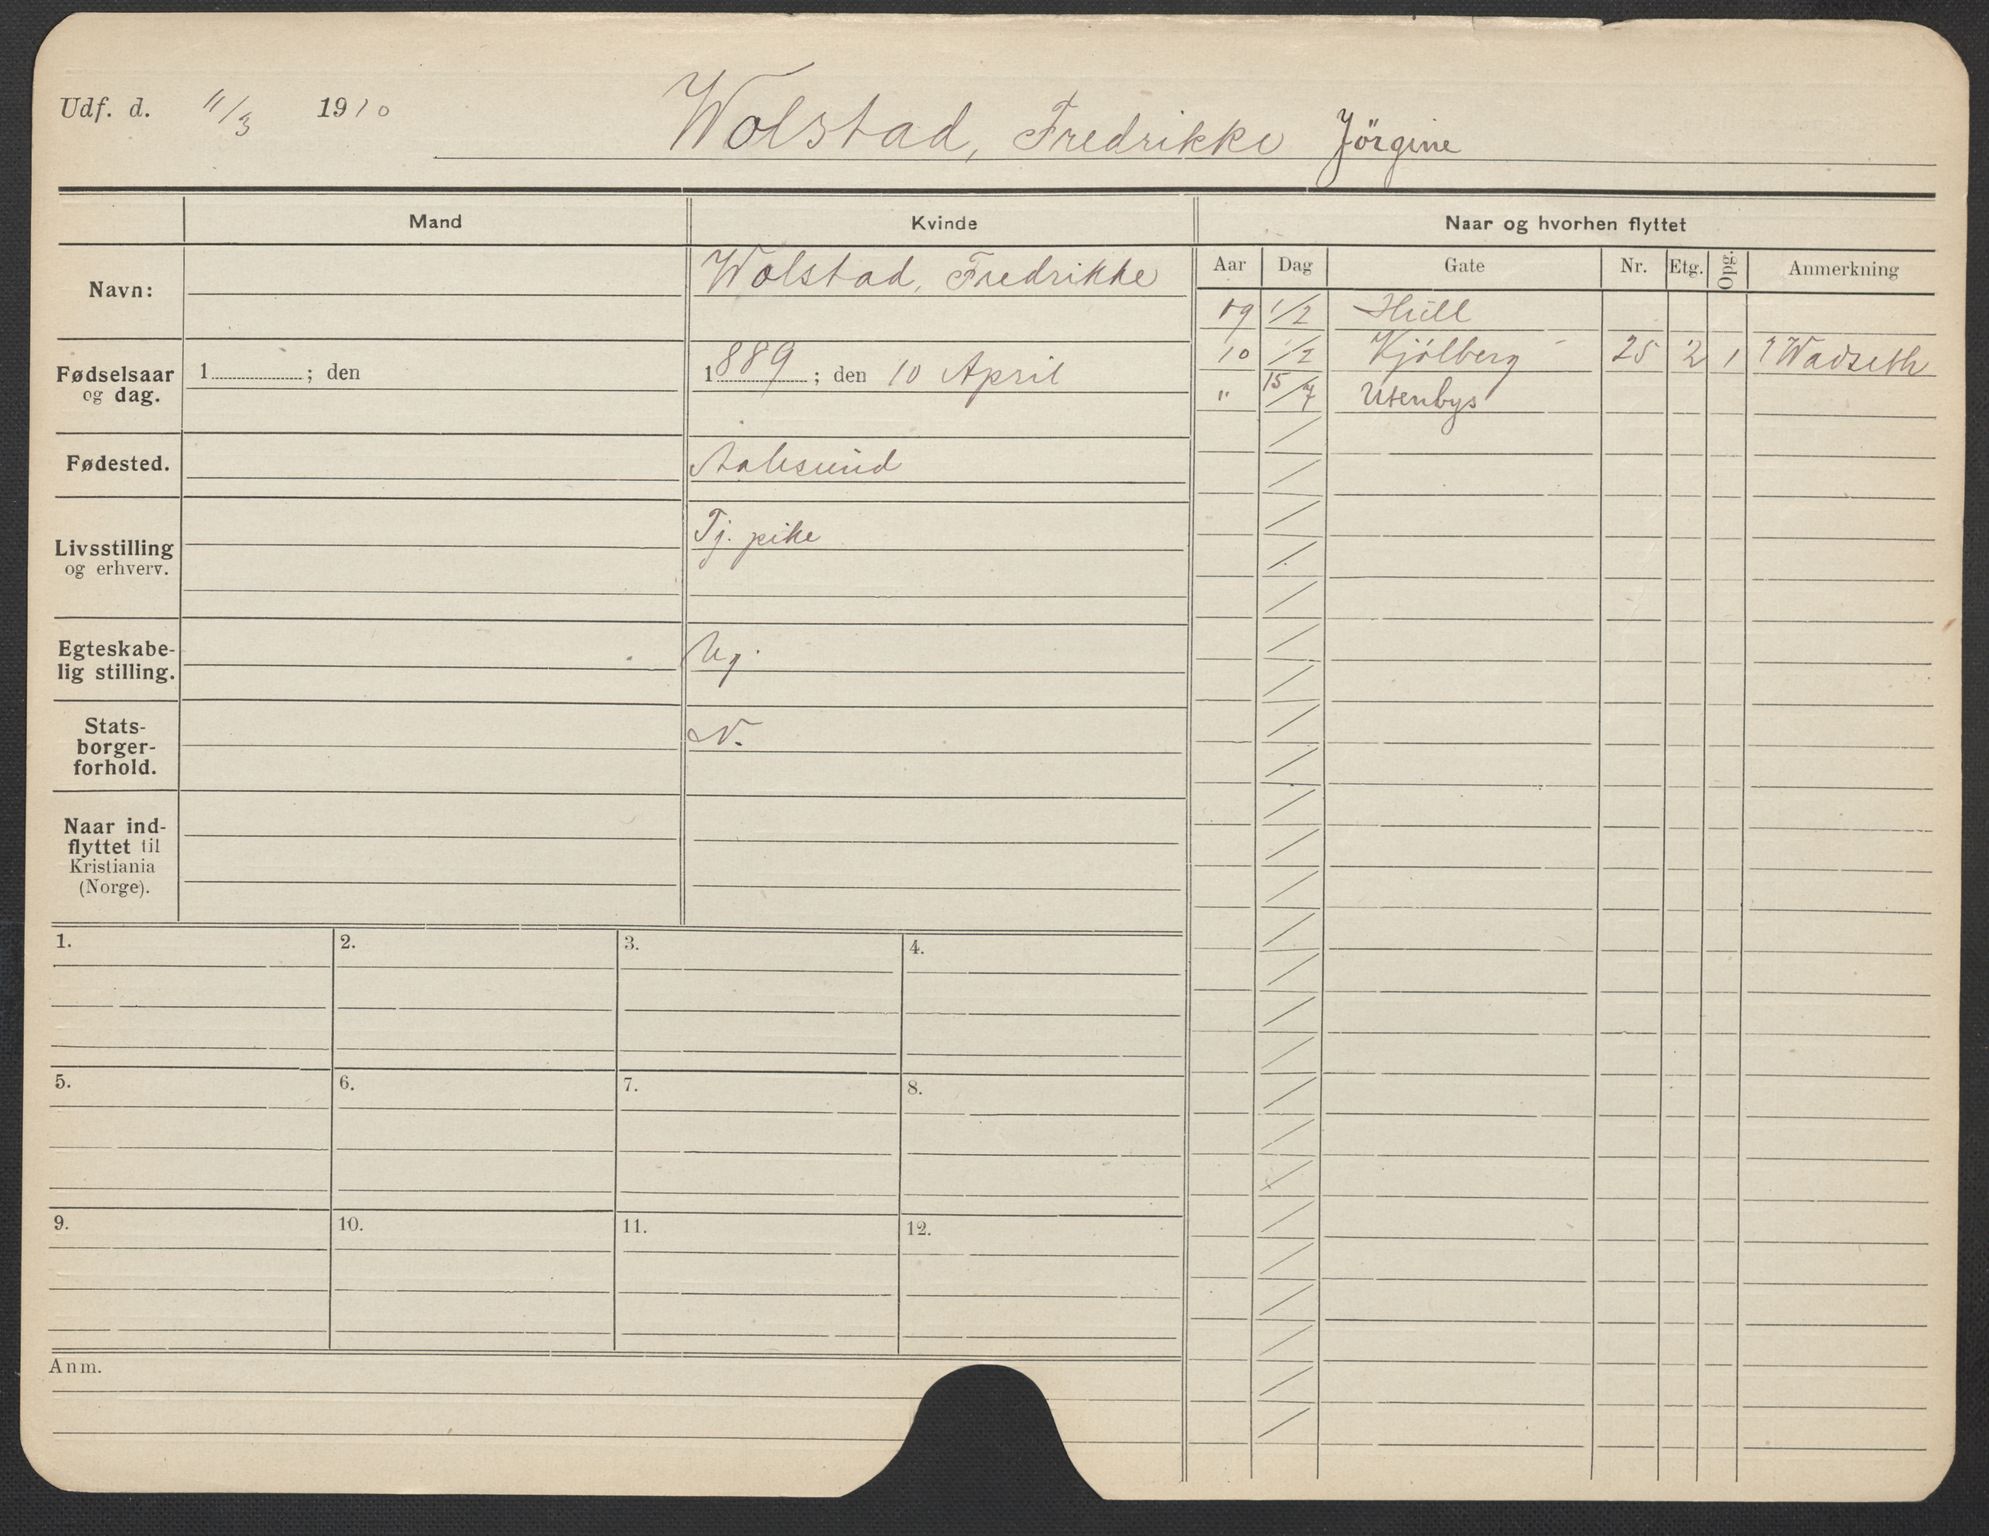 Udf. d. 11/3 1910 Wolstad, Fredrikke Jörgine
Mand Kvinde Naar og hvorhen flyttet
Aar Dag Gate Nr. Etg. Opg. Anmerkning
Navn: Wolstad, Fredrikke
09 1/2 Hull
10 1/2 Kjölberg 25 2 1 Wadseth
" 15/4 Utenbys
Fødselsaar
og dag.
1 ; den
1889 ; den 10 April
Fødested. Aalesund
Livsstilling
og erhverv.
Tj. pike
Egteskabe-
lig stilling.
Ug.
Stats-
borger-
forhold.
N.
Naar ind-
flyttet til
Kristiania
(Norge).
1. 2. 3. 4.
5. 6. 7. 8.
9. 10. 11. 12.
Anm.